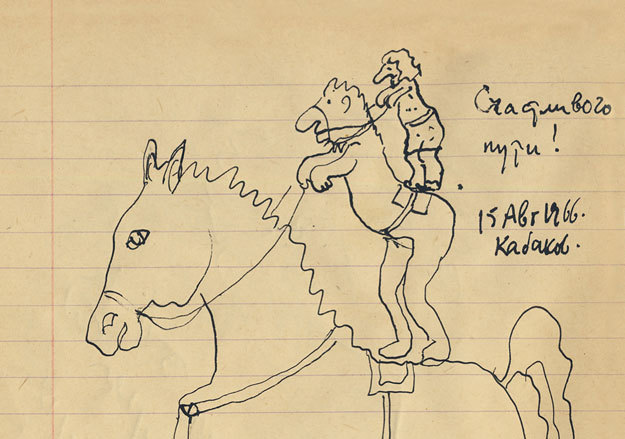 Счастливого
пути!
15 Авг 1966.
Кабаков.